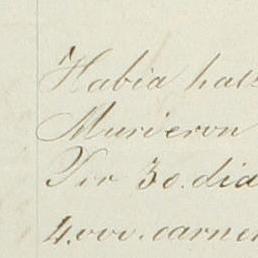 Habia hall
Murieron
Por 30. dia
4.000. carne